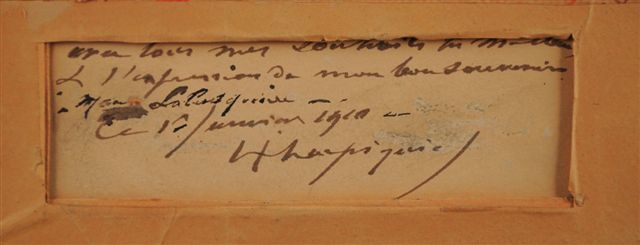 avec tous mes souhaits
& l'expression de mon bon souvenir
à
Ce 1er Janvier 1910 -
H Harpignies